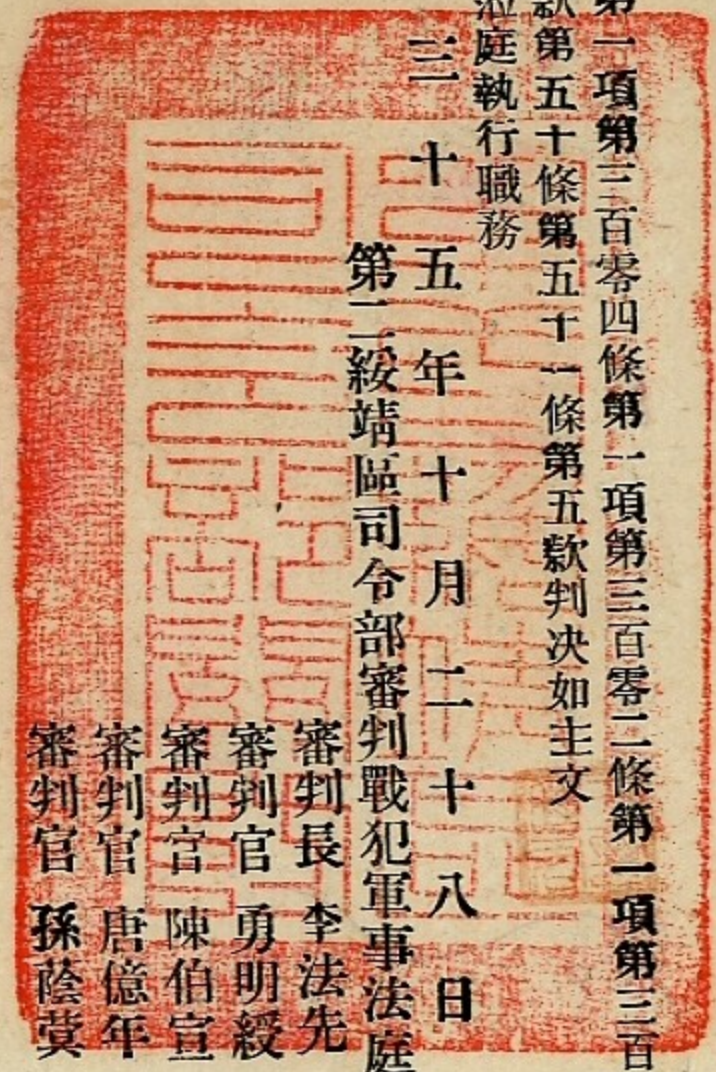 第一項第三百零四條第一項第三百零二條第一項第三百
款第五十條第五十一條第五款判决如主文
蒞庭執行職務
三十五年十月二十八日
第二綏靖區司令部審判戰犯軍事法庭
審判長 李法先
審判官 勇明綬
審判官 陳伯宣
審判官 唐億年
審判官 孫蔭蓂